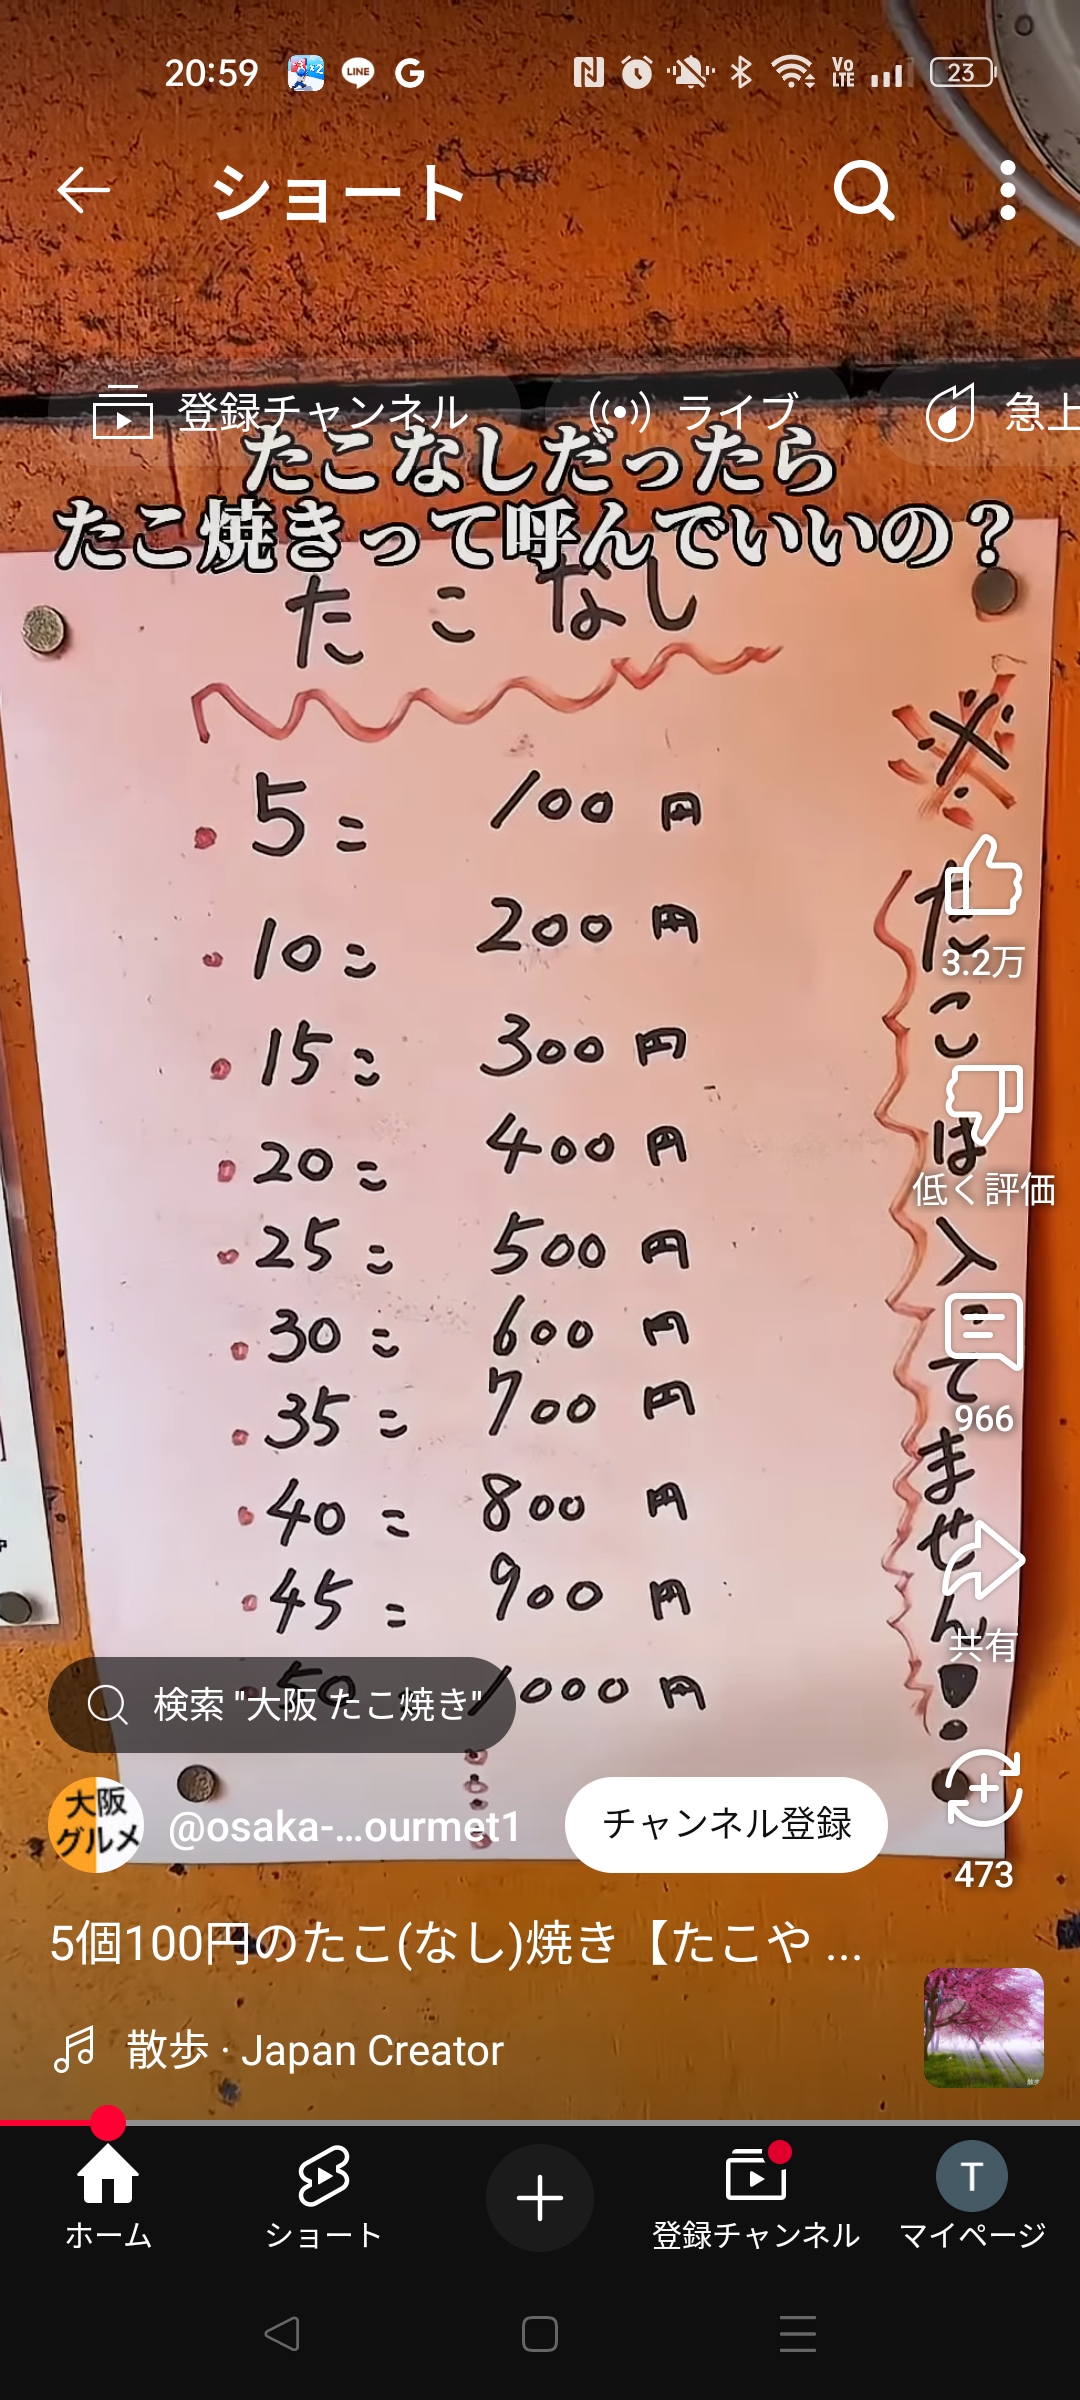 20:59
LINE
G
Vo LTE
23
ショート
登録チャンネル
ライブ
急上
たこなしだったら
たこ焼きって呼んでいいの？
たこなし
5コ 100円
10コ 200円
15コ 300円
20コ 400円
25コ 500円
30コ 600円
35コ 700円
40コ 800円
45コ 900円
50コ 1000円
※たこは入ってません!
3.2万
低く評価
966
共有
473
検索 "大阪 たこ焼き"
大阪
グルメ
@osaka-...ourmet1
チャンネル登録
5個100円のたこ(なし)焼き【たこや ...
散歩 · Japan Creator
ホーム
ショート
登録チャンネル
T
マイページ